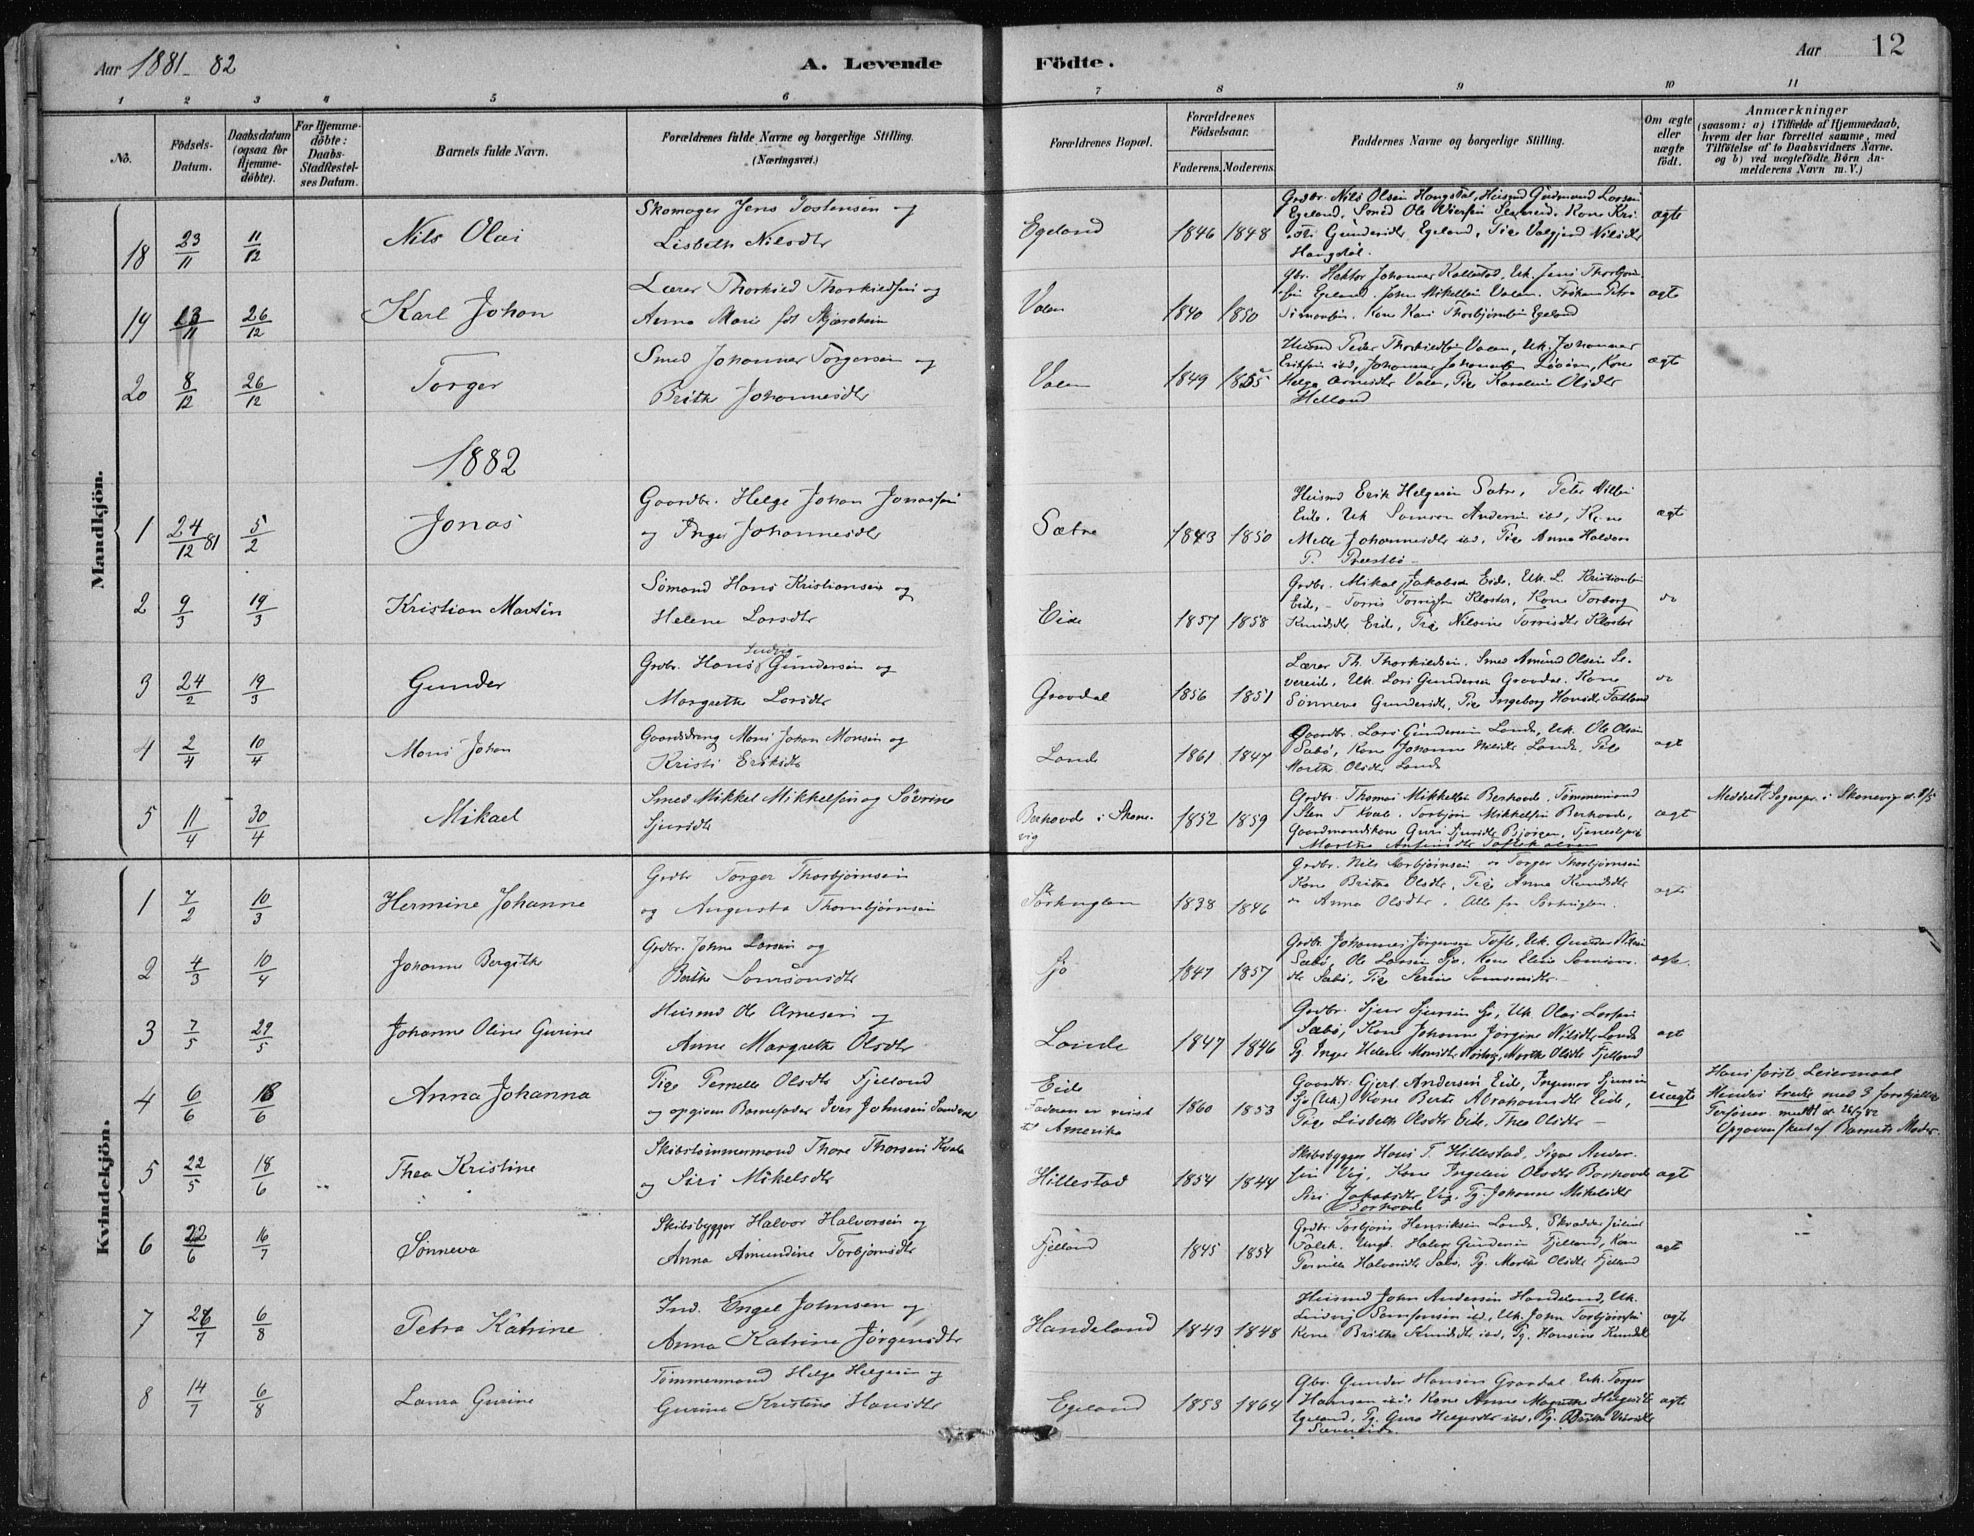 Aar 1881-82
A. Levende
Födte.
Aar
12
1 2 3 4 5 6 7 8 9 10 11
No.
Födsels-Datum.
Daabsdatum (ogsaa for Hjemme-døbte).
For Hjemme-døbte: Daabs-Stadfæstel-ses Datum.
Barnets fulde Navn.
Forældrenes fulde Navne og borgerlige Stilling. (Næringsvei.)
Forældrenes Bopæl.
Forældrenes Födselsaar.
Faderens. Moderens.
Faddernes Navne og borgerlige Stilling.
Om ægte eller uægte födt.
Anmærkninger
(saasom: a) i Tilfælde af Hjemmedaab,
hvem der har forrettet samme, med
Tilföielse af to Daabsvidners Navne.
og b) ved uægtefödte Börn An-
melderens Navn m. V.)
Mandkjön.
18 23/11 11/12 Nils Olai
Skomager Jens Tostensen og
Lisbeth Nilsdtr
Egeland 1846 1848
Grdbr. Nils Olsen Haugstøl, Husmd Gudmund Larsen
Egeland, Smed Ole
Gundersdtr Egeland, Pige Valgjerd Nilsdtr
Haugstøl.
ægte
19 13/11 26/12 Karl Johan
Lærer Thorkild Thorkildsen og
Anna Marie født
Valen 1840 1850
Kone Kari Thorbjørnsen Egeland
ægte
20 8/12 26/12 Torger
Smed Johannes Torgersen og
Brithe Johannesdtr
Valen 1849 1855
Husmd Peder Thorkildsen Valen, Uk. Johannes
Helga Arnesdtr Valen, Pige Karoline Olsdtr
Helland
ægte
1882
1 24/12 81 5/2 Jonas
Gaardbr. Helge Johan Jonassen
og Inger Johannesdtr
Sætre 1843 1850
Husmd Erik Helgesen Sætre, Peter Nilsen
Eide. Uk Samson Andersen ibd, Kone
Mette Johannesdtr ibd, Pige Anna Halvors
P. Præstbø
ægt
2 9/3 19/3 Kristian Martin
Sømand Hans Kristiansen og
Helene Larsdtr
Eide 1857 1858
Grdbr. Mikal Jakobsen Eide, Uk. L. Kristiansen
Eide, Torris Torrisen Kloster, Kone Torborg
Knudsdtr Eide, Pige Nilsine Torrisdtr Kloster
do
3 24/2 19/3 Gunder
Grdbr. Hans Ludvig Gundersen og
Margrethe Larsdtr
Gravdal 1856 1851
Lærer Th. Thorkildsen. Smed Amund Olsen Se-
vereide, Uk. Lars Gundersen Gravdal. Kone
Sønneva Gundersdtr, Pige Ingeborg Hansdtr Fatland
do
4 2/4 10/4 Mons Johan
Gaardsdreng Mons Johan Monsen og
Kristi Eriksdtr
Lande 1861 1847
Gaardbr. Lars Gundersen Lande, Uk. Ole Olsen
Sæbø, Kone Johanne Nilsdtr Lande. Pige
Marthe Olsdtr Lande
ægt
5 11/4 30/4 Mikael
Smed Mikkel Mikkelsen og Sørine
Sjursdtr
Berhovde i Skone-
vig
1852 1859
Grdbr. Thomas Mikkelsen Berhovde, Tømmermand
Sten T Kvale. Torbjørn Mikkelsen Berhovde,
Gaardmandskone Guri Sjursdtr Bjørgen, Tjenestepige
ægt
Meddelt Sognepr. i Skonevig d. 8/5
Kvindekjön.
1 7/2 10/3 Hermine Johanne
Grdbr Torger Thorbjørnsen
og Augusta Thornbjørnsen
1838 1846
Grdbr. Nils Torbjørnsen Torger Thorbjørnsen
Kone Britha Olsdtr, Pige Anna Knudsdtr
Anna Olsdtr. Alle fra
ægte
2 4/3 10/4 Johanne Bergithe
Grdbr. Johne Larsen og
Berthe Samsonsdtr
Sjo 1847 1857
Grdbr. Johannes Jørgensen Tofte, Uk. Gunder Nilsen
Sæbø, Ole Larsen Sjo. Kone Eline Samsons-
dtr Sæbø, Pige Serine Samsonsdtr
ægte.
3 7/5 29/5 Johanne Oline Gurine
Husmd Ole Arnesen og
Anne Margrethe Olsdtr
Lande 1847 1846
Grdbr. Sjur Sjursen Sjo, Uk Olai Larsen
Sæbø, Kone Johanne Jørgine Nilsdtr Lande
Pg. Inger Helene Monsdtr, Marthe Olsdtr Fjelland
ægt
4 6/6 18/6 Anna Johanna
Pige Pernille Olsdtr Fjelland
og opgiven Barnefader Iver Johnsen
Eide
Faderen er reist
til Amerika
1860 1853
Gaardbr. Gjert Andersen Eide, Ingemar Sjursen
Sjo (Uk.) Kone Berte Abrahamsdtr Eide,
Pige Lisbeth Olsdtr Eide, Thea Olsdtr
uægte
Hans første Leiermaal
Hendes tredie med 3 forskjellige
Personer meddt d. 26/6 82
Opgaven sket af Barnets Moder.
5 22/5 18/6 Thea Kristine
Skibstømmermand Thore Thorsen Kvale
og Siri Mikelsdtr
Hillestad 1854 1844
Skibsbygger Hans T. Hillestad, Sigva Ander-
sen Vig, Kone Ingeleiv Olsdtr Borhovde
Siri Jakobsdtr Vig, Pg. Johanne Mikelsdtr
Borhovde
ægt
6 22/6 16/7 Sønneva
Skibsbygger Halvor Halvorsen og
Anna Amundine Torbjørnsdtr
Fjelland 1845 1854
Grdbr Torbjørn Henriksen Lande, Skrædder
Falck. Ungk. Halvor Gundersen Fjelland, Kone
Pernille Halvorsdtr Sæbø, Pg. Marthe Olsdtr Fjelland
ægt
7 28/7 6/8 Petra Katrine
Ind. Engel Johnsen og
Anna Katrine Jørgensdtr
Handeland 1849 1848
Husmd John Andersen Handeland, Uk.
Ludvig Samsonsen ibd, Uk. John Torbjørnsen
Kone Brithe Knudsdtr ibd, Pg. Hansine Knudsdtr
ægte
8 14/7 6/8 Laura Gurine
Tømmermand Helge Helgesen og
Gurine Kristine Hansdtr
Egeland 1853 1864
Gbr. Gunder Hansen Gravdal Uk. Torger
Hansen ibd, Kone Anne Margrethe Helgesdtr
Egeland, Pg. Guro Helgesdtr ibd, Pg. Brithe
ægte